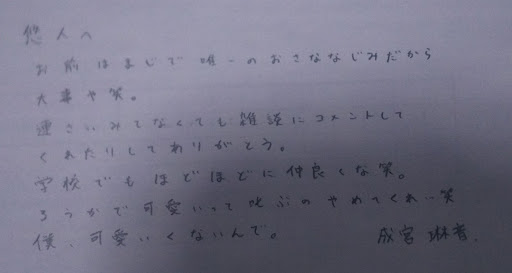 悠人へ
お前はまじで唯一のおさななじみだから
大事や笑。
連さいみてなくても雑談にコメントして
くれたりしてありがとう。
学校でもほどほどに仲良くな笑。
ろうかで可愛いって叫ぶのやめてくれ笑
僕、可愛いくないんで。 成宮琳